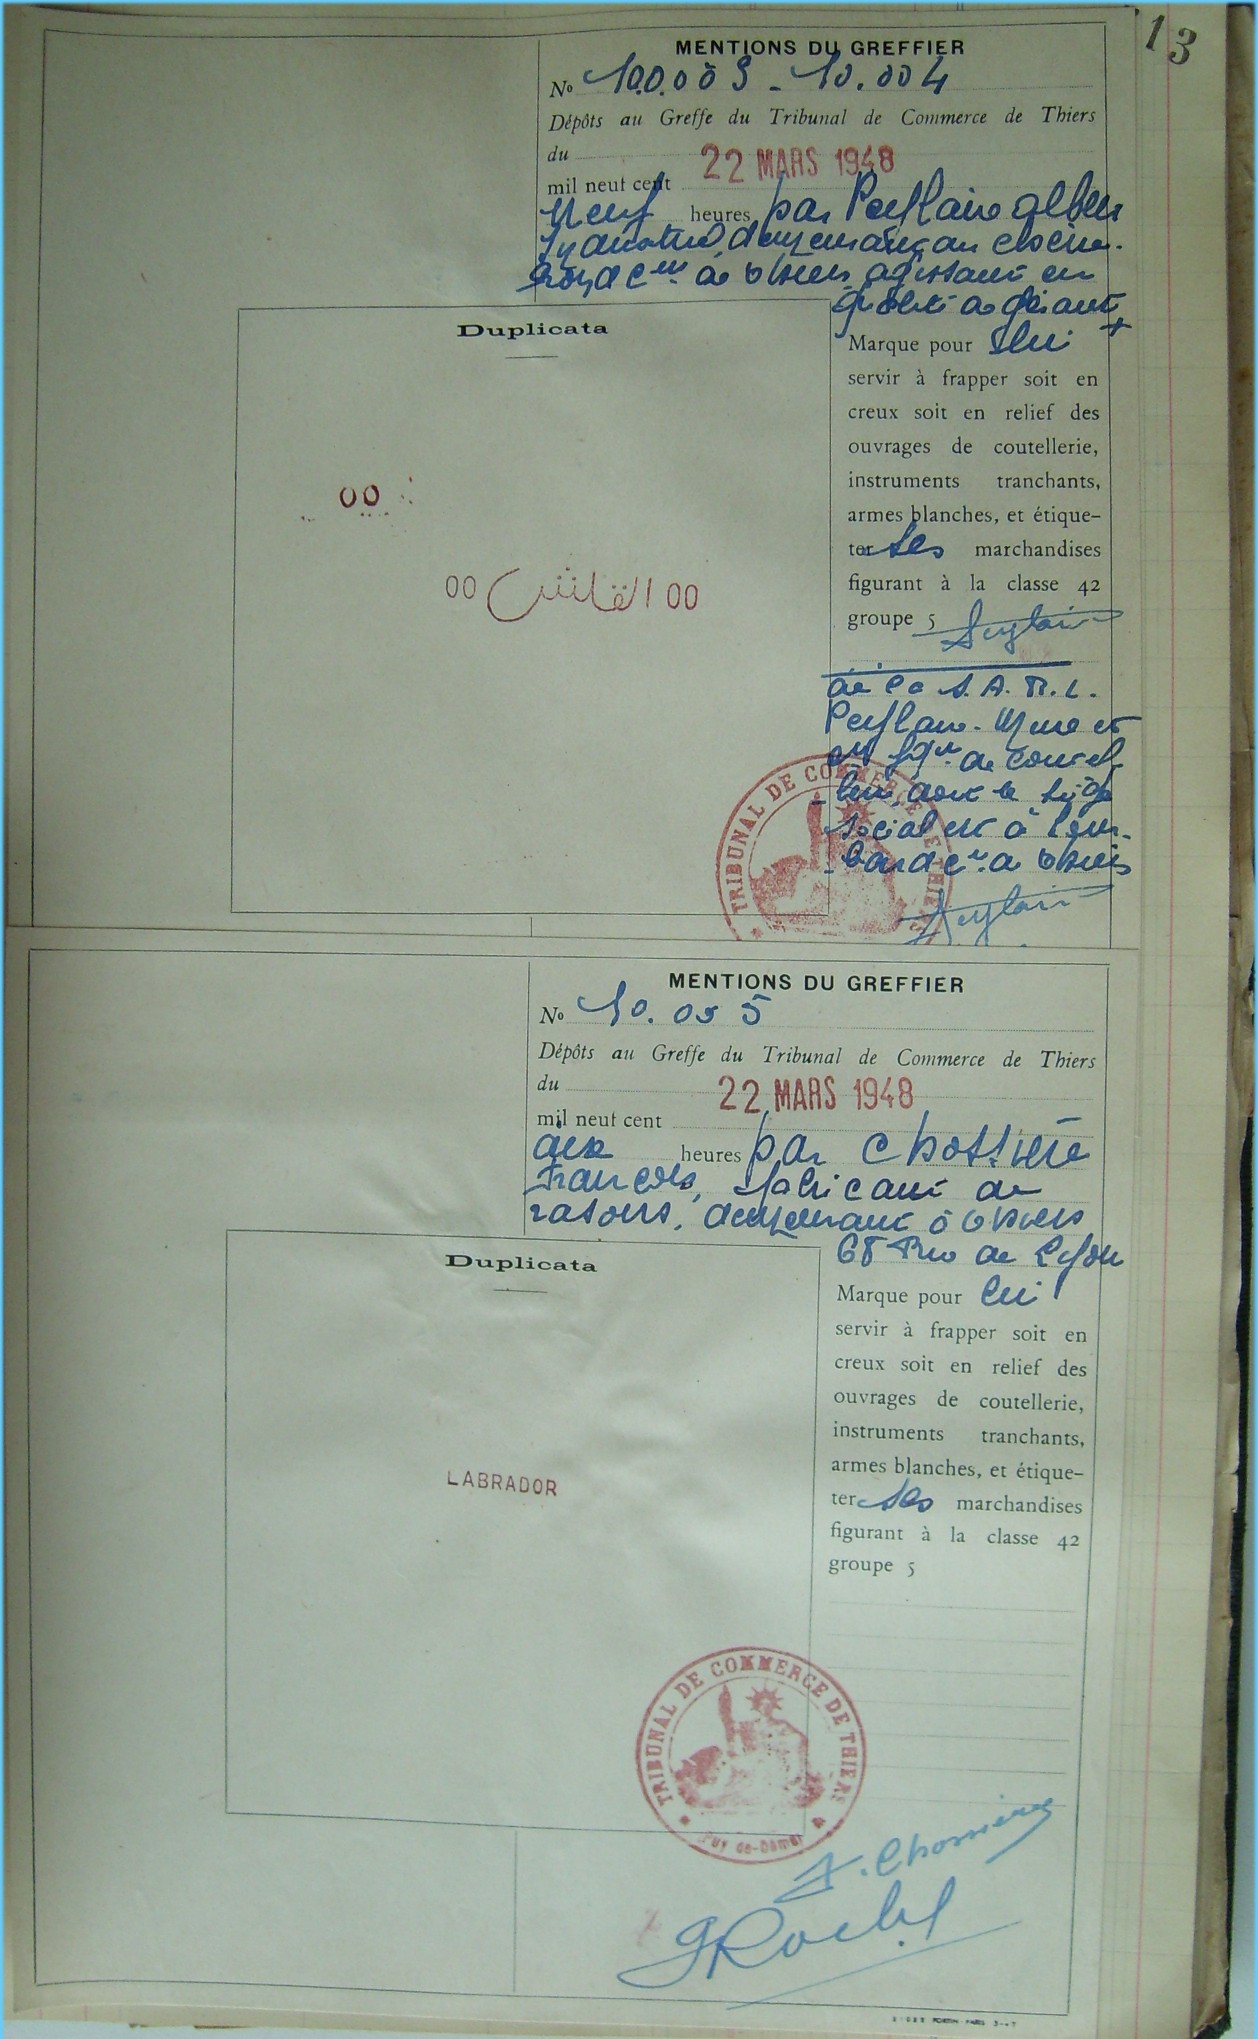 13
MENTIONS DU GREFFIER
No 10.003 - 10.004
Dépôts au Greffe du Tribunal de Commerce de Thiers
du 22 MARS 1948
mil neuf cent
Neuf heures par
agissant en
qualité de gérant +
Duplicata
Marque pour lui
servir à frapper soit en
creux soit en relief des
ouvrages de coutellerie,
instruments tranchants,
armes blanches, et étique-
ter ses marchandises
figurant à la classe 42
groupe 5
00
00 القاتش 00
de la S.A.R.L.
de coutel-
lerie, dont le siège
social est à
TRIBUNAL DE COMMERCE DE THIERS
MENTIONS DU GREFFIER
No 10.005
Dépôts au Greffe du Tribunal de Commerce de Thiers
du 22 MARS 1948
mil neuf cent
dix heures par Chossière
François, fabricant de
rasoirs, demeurant à Thiers
68 Rue de Lyon
Duplicata
Marque pour lui
servir à frapper soit en
creux soit en relief des
ouvrages de coutellerie,
instruments tranchants,
armes blanches, et étique-
ter ses marchandises
figurant à la classe 42
groupe 5
LABRADOR
TRIBUNAL DE COMMERCE DE THIERS
Puy-de-Dôme
F. Chossière